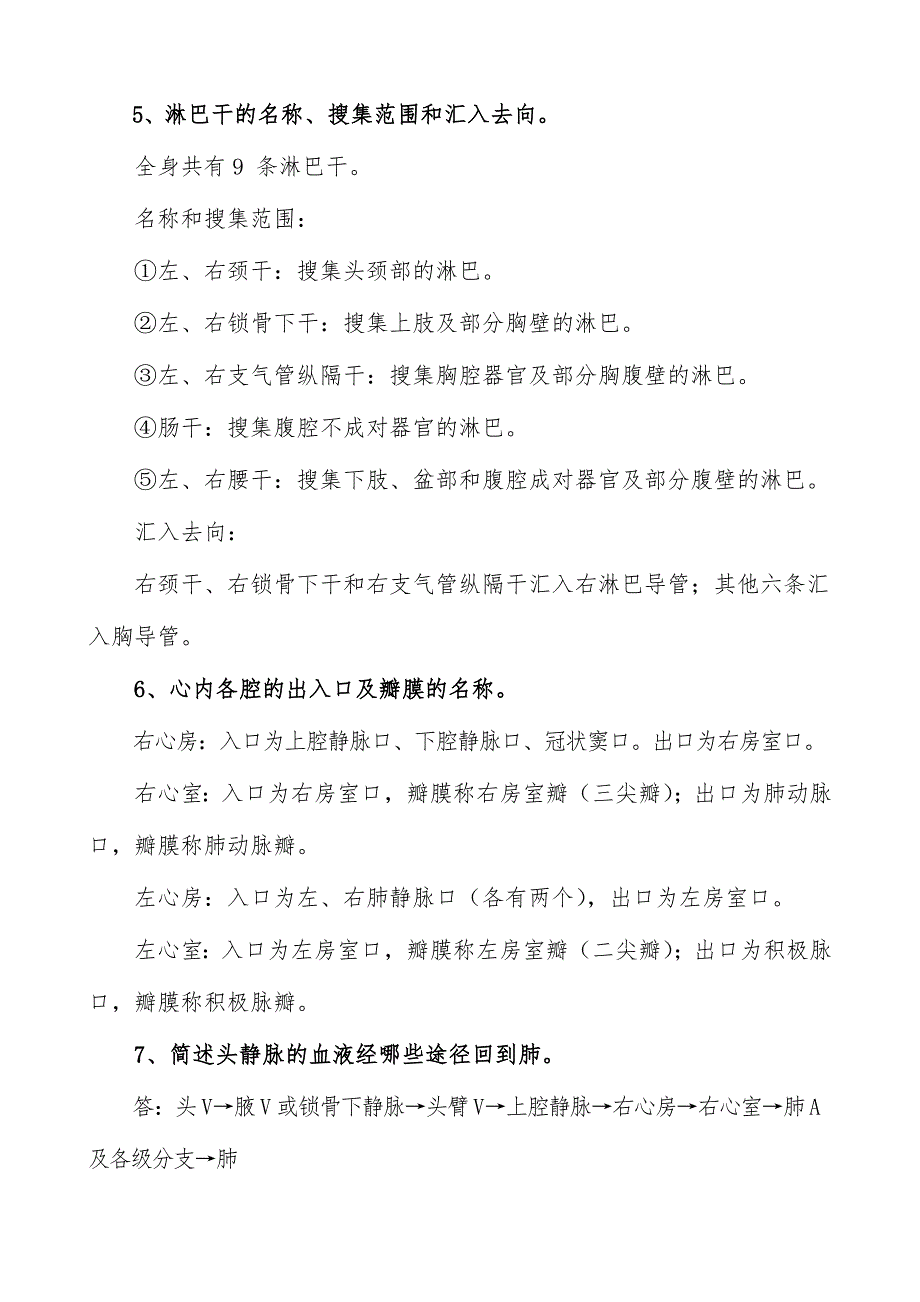 5、淋巴干的名称、搜集范围和汇入去向。
全身共有9 条淋巴干。
名称和搜集范围：
①左、右颈干：搜集头颈部的淋巴。
②左、右锁骨下干：搜集上肢及部分胸壁的淋巴。
③左、右支气管纵隔干：搜集胸腔器官及部分胸腹壁的淋巴。
④肠干：搜集腹腔不成对器官的淋巴。
⑤左、右腰干：搜集下肢、盆部和腹腔成对器官及部分腹壁的淋巴。
汇入去向：
右颈干、右锁骨下干和右支气管纵隔干汇入右淋巴导管；其他六条汇
入胸导管。
6、心内各腔的出入口及瓣膜的名称。
右心房：入口为上腔静脉口、下腔静脉口、冠状窦口。出口为右房室口。
右心室：入口为右房室口，瓣膜称右房室瓣（三尖瓣）；出口为肺动脉
口，瓣膜称肺动脉瓣。
左心房：入口为左、右肺静脉口（各有两个），出口为左房室口。
左心室：入口为左房室口，瓣膜称左房室瓣（二尖瓣）；出口为积极脉
口，瓣膜称积极脉瓣。
7、简述头静脉的血液经哪些途径回到肺。
答：头V→腋V或锁骨下静脉→头臂V→上腔静脉→右心房→右心室→肺A
及各级分支→肺